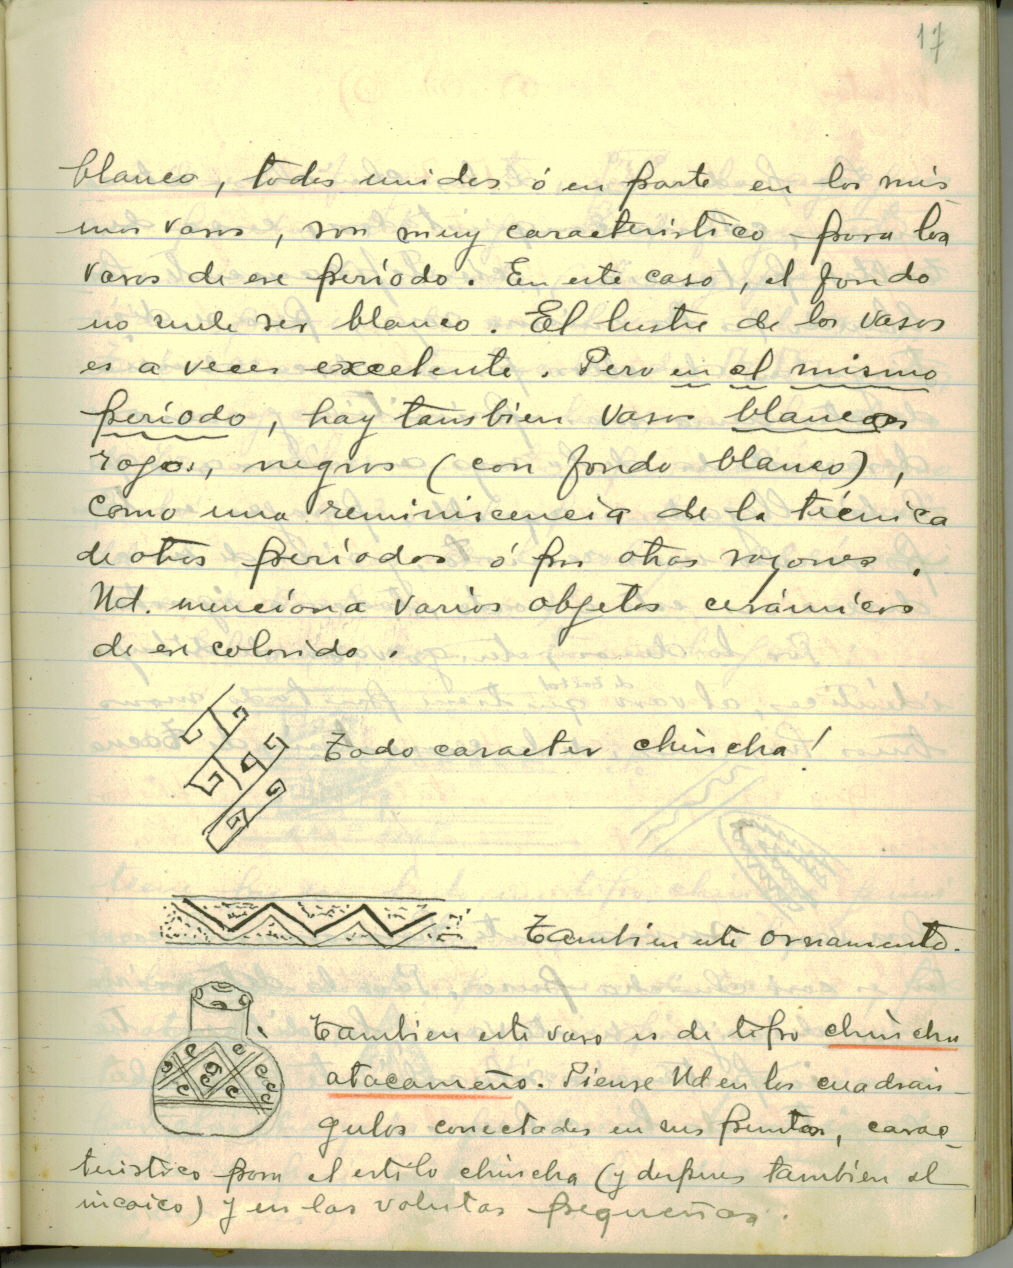 17
blanco, todos unidos ó en parte en los mis
mos vasos, son muy caracteristico para los
vasos de ese período. En este caso, el fondo
no suele ser blanco. El lustre de los vasos
es a veces excelente. Pero en el mismo
período, hay tambien vasos blancos
rojos, negros (con fondo blanco),
como una reminiscencia de la técnica
de otros períodos ó por otras razones.
Ud. menciona varios objetos cerámicos
de ese colorido.
Todo caracter chincha!
Tambien este ornamento.
Tambien este vaso es de tipo chincha
atacameño. Piense Ud en los cuadran
gulos conectados en sus puntas, carac-
teristico para el estilo chincha (y despues tambien el
incaico) y en las volutas pequeñas.